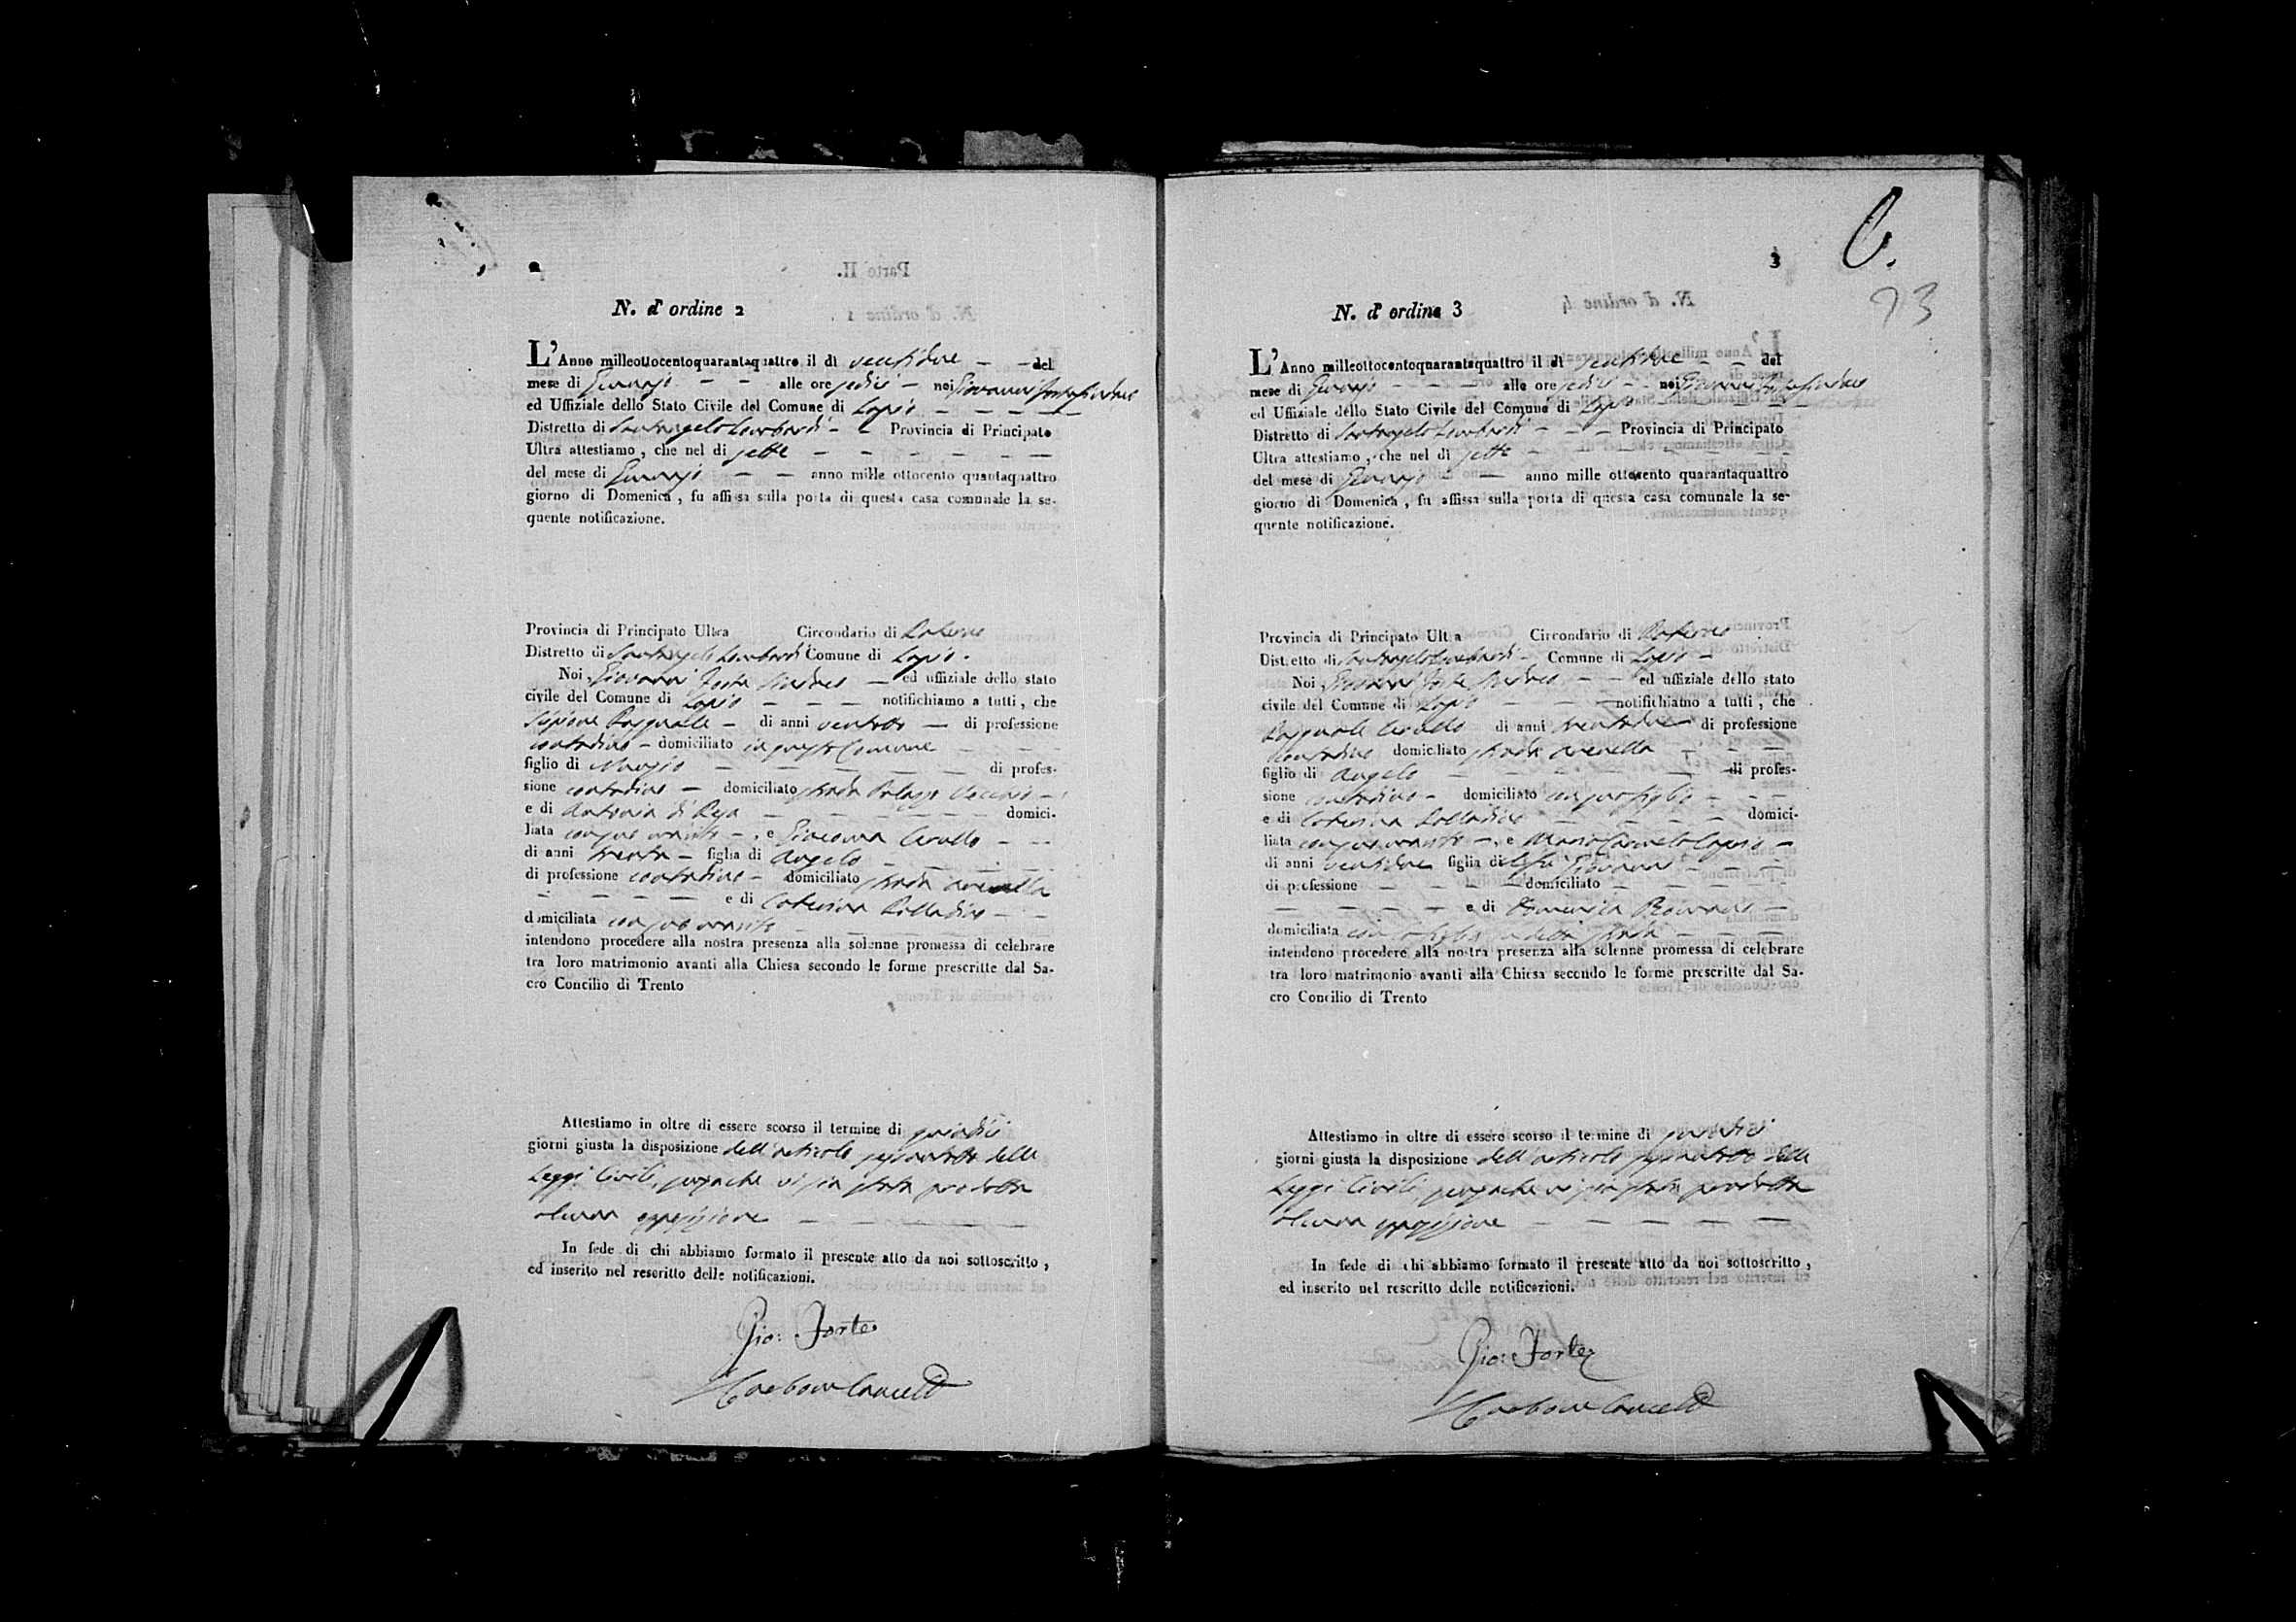 N. d' ordine 2
L'Anno milleottocentoquarantaquattro il dì ventidue del
mese di Gennajo alle ore sedici noi Giovanni Forte Sindaco
ed Uffiziale dello Stato Civile del Comune di Lapio
Distretto di Santangelo Lombardi Provincia di Principato
Ultra attestiamo, che nel dì sette
del mese di Gennajo anno mille ottocento quantaquattro
giorno di Domenica, fu affissa sulla porta di questa casa comunale la se-
quente notificazione.
Provincia di Principato Ultra Circondario di Paterno
Distretto di Santangelo Lombardi Comune di Lapio.
Noi Giovanni Forte Sindaco ed uffiziale dello stato
civile del Comune di Lapio notifichiamo a tutti, che
Sipione Pasquale di anni ventotto di professione
contadino domiciliato in questo Comune
figlio di Nunzio di profes-
sione contadino domiciliato strada Palazzo Vecchio
e di Antonia di domici-
liata con suo marito, e Giacoma Cerullo
di anni trenta figlia di Angelo
di professione contadino domiciliato strada Arenella
e di Caterina Palladino
domiciliata con suo marito
intendono procedere alla nostra presenza alla solenne promessa di celebrare
tra loro matrimonio avanti alla Chiesa secondo le forme prescritte dal Sa-
cro Concilio di Trento
Attestiamo in oltre di essere scorso il termine di quindici
giorni giusta la disposizione dell'articolo sessantotto delle
Leggi Civili, senzache vi sia stata prodotta
alcuna opposizione
In fede di chi abbiamo formato il presente atto da noi sottoscritto,
ed inserito nel rescritto delle notificazioni.
Gio: Forte
3
6.
93
N. d' ordine 3
L'Anno milleottocentoquarantaquattro il dì ventidue del
mese di Gennajo alle ore sedici noi Giovanni Forte Sindaco
ed Uffiziale dello Stato Civile del Comune di Lapio
Distretto di Santangelo Lombardi Provincia di Principato
Ultra attestiamo, che nel dì sette
del mese di Gennajo anno mille ottocento quarantaquattro
giorno di Domenica, fu affissa sulla porta di questa casa comunale la se-
quente notificazione.
Provincia di Principato Ultra Circondario di Paterno
Distretto di Santangelo Lombardi Comune di Lapio
Noi Giovanni Forte Sindaco ed uffiziale dello stato
civile del Comune di Lapio notifichiamo a tutti, che
Pasquale Cerullo di anni trentadue di professione
contadino domiciliato strada Arenella
figlio di Angelo di profes-
sione contadino domiciliato con suo figlio
e di Caterina Palladino domici-
liata con suo marito, e Maria Carmela
di anni ventidue figlia di Giovanni
di professione domiciliato
e di Domenica Romano
domiciliata con figlia in detta strada
intendono procedere alla nostra presenza alla solenne promessa di celebrare
tra loro matrimonio avanti alla Chiesa secondo le forme prescritte dal Sa-
cro Concilio di Trento
Attestiamo in oltre di essere scorso il termine di quindici
giorni giusta la disposizione dell'articolo sessantotto delle
Leggi Civili, senzache vi sia stata prodotta
alcuna opposizione
In fede di chi abbiamo formato il presente atto da noi sottoscritto,
ed inserito nel rescritto delle notificazioni.
Gio: Forte